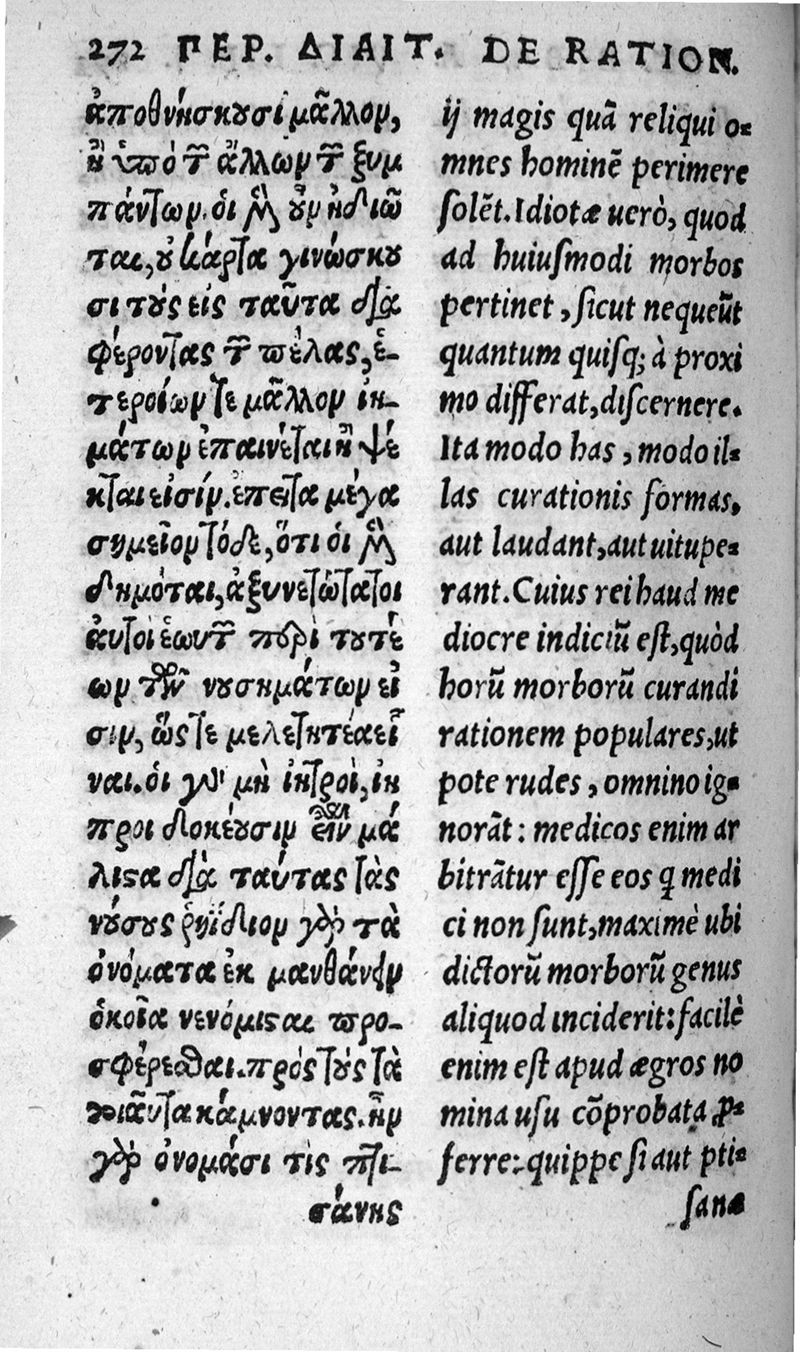 272 ΠΕΡ. ΔΙΑΙΤ. DE RATION.
ἀποθνήσκουσι μᾶλλον,
ἢ ὑπὸ τῶν ἄλλων τῶν ξυμ
πάντων. οἱ μὲν οὖν ἰδιῶ
ται, οὐ κάρτα γινώσκου
σι τοὺς εἰς ταῦτα δια
φέροντας τῶν πέλας, ἑ-
τεροίων τε μᾶλλον ἰη-
μάτων ἐπαινέται ἢ ψέ
κται εἰσίν. ἐπεὶ τα μέγα
σημεῖον τόδε, ὅτι οἱ μὲν
δημόται, ἀξυνετώτατοι
αὐτοὶ ἑωυτῶν περὶ τουτέ
ων τῶν νουσημάτων εἰ
σιν, ὥς τε μελετητέα εἶ
ναι. οἱ γὰρ μὴ ἰητροὶ, ἰη
προι δοκέουσιν εἶναι μά
λιστα διὰ ταύτας τὰς
νούσους ῥηΐδιον γὰρ τὰ
ὀνόματα ἐκ μανθάνειν
ὁκοῖα νενόμισται προ-
σφέρεσθαι. πρὸς τοὺς τὰ
τοιαῦτα κάμνοντας. ἢν
γὰρ ὀνομάσι τὶς πτι-
σάνης
ij magis quã reliqui o-
mnes hominẽ perimere
ſolẽt. Idiotæ uerò, quod
ad huiuſmodi morbos
pertinet, ſicut nequeũt
quantum quiſq; à proxi
mo differat, diſcernere.
Ita modo has, modo il-
las curationis formas,
aut laudant, aut uitupe-
rant. Cuius rei haud me
diocre indiciũ eſt, quòd
horũ morborũ curandi
rationem populares, ut
pote rudes, omnino ig-
norãt: medicos enim ar
bitrãtur eſſe eos q medi
ci non ſunt, maximè ubi
dictorũ morborũ genus
aliquod inciderit: facilè
enim eſt apud ægros no
mina uſu cõprobata ꝓ-
ferre: quippe ſi aut pti-
ſanæ